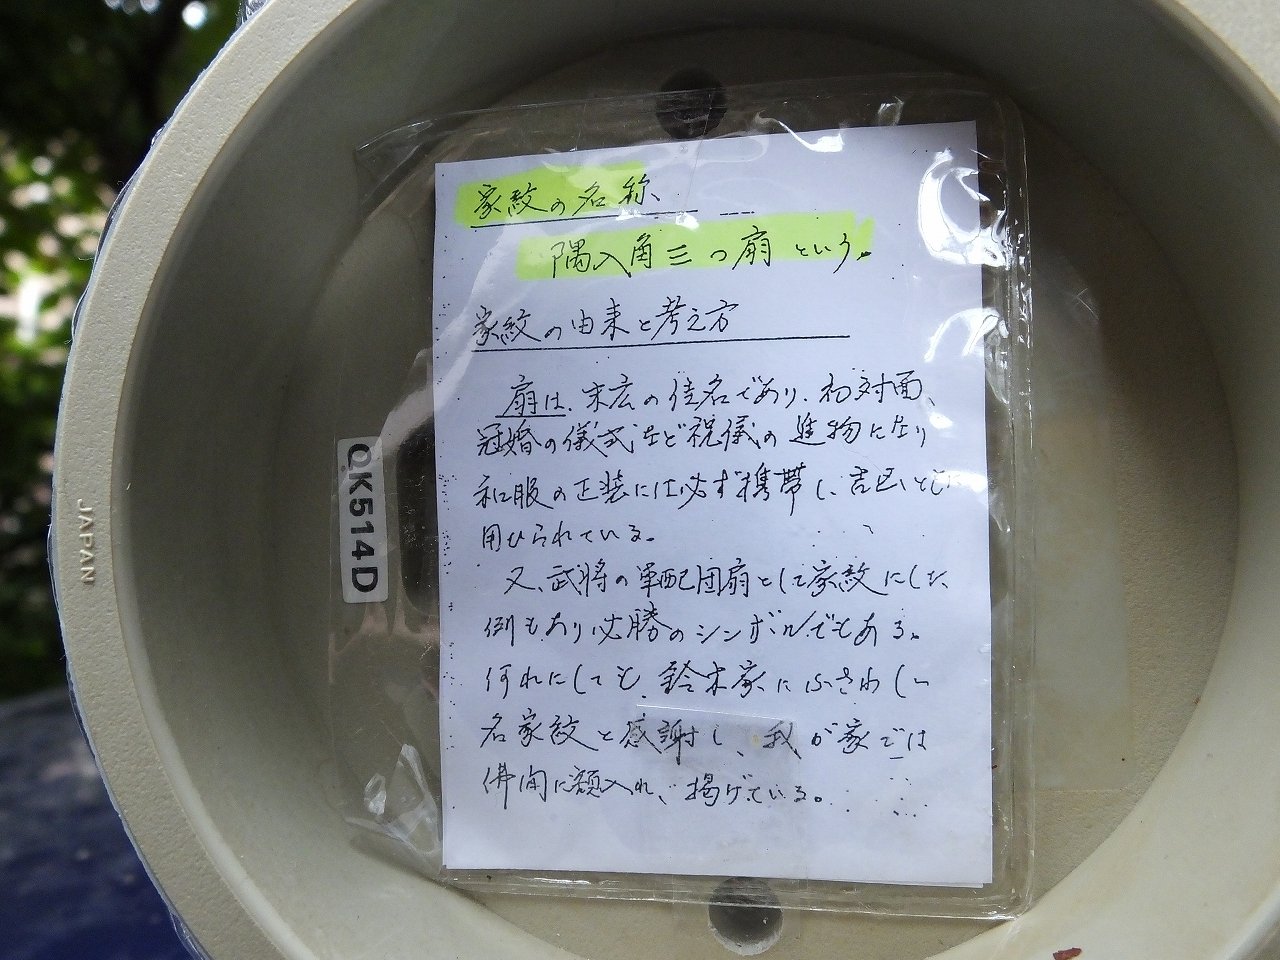 家紋の名称、
隅入角三つ扇という。
家紋の由来と考え方
扇は、末広の佳名であり、初対面、
冠婚の儀式など祝儀の進物になり
和服の正装には必ず携帯し、吉凶とも
用ひられている。
又、武将の軍配団扇として家紋にした
例もあり必勝のシンボルでもある。
何れにしても、鈴木家にふさわしい
名家紋と感謝し、我が家では
佛間に額入れ、掲げている。
QK514D
JAPAN